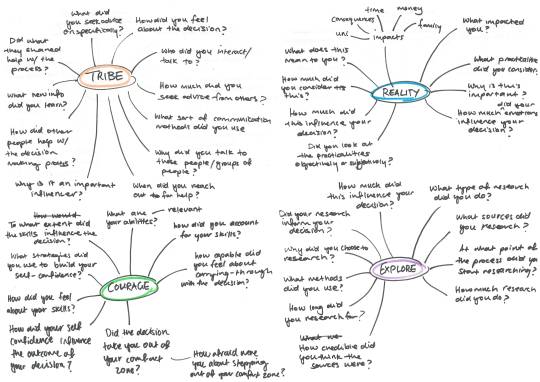 What did
you seek advice
on specifically?
How did you feel
about the decision?
Did what
they shared
help w/ the
process?
Who did you interact/
talk to?
TRIBE
What new info
did you learn?
How much did you
seek advice from others?
What sort of communication
methods did you use
How did other
people help w/
the decision
making
Why did you talk to
those people/groups of
people?
Why is it an important
influencer?
When did you reach
out to for help?
time
money
consequences
family
uni
impacts
What impacted you?
What does this
mean to you?
What practicalities
did you consider
How much did
you consider
this?
REALITY
Why is this
important?
How much did
this influence your
decision?
How much did your emotions
influence your
decision?
Did you look at
the practicalities
objectively or subjectively?
To what extent did
the skills influence the
decision?
What are relevant
your abilities?
how did you account
for your skills?
What strategies did
you use to build your
self-confidence?
how capable did
you feel about
carrying-through
with the decision?
COURAGE
How did you feel
about your skills?
How did your self
confidence influence
the outcome of
your decision?
Did the decision
take you out of
your comfort
zone?
How afraid were
you about stepping
out of your comfort zone?
How much did
this influence your
decision?
What type of research
did you do?
Did your research
inform your
decision?
What sources did
you research?
Why did you choose to
research?
EXPLORE
At what point of
the process did you
start researching?
What methods
did you use?
How much research
did you do?
How long did
you research for?
How credible did
you think the
sources were?